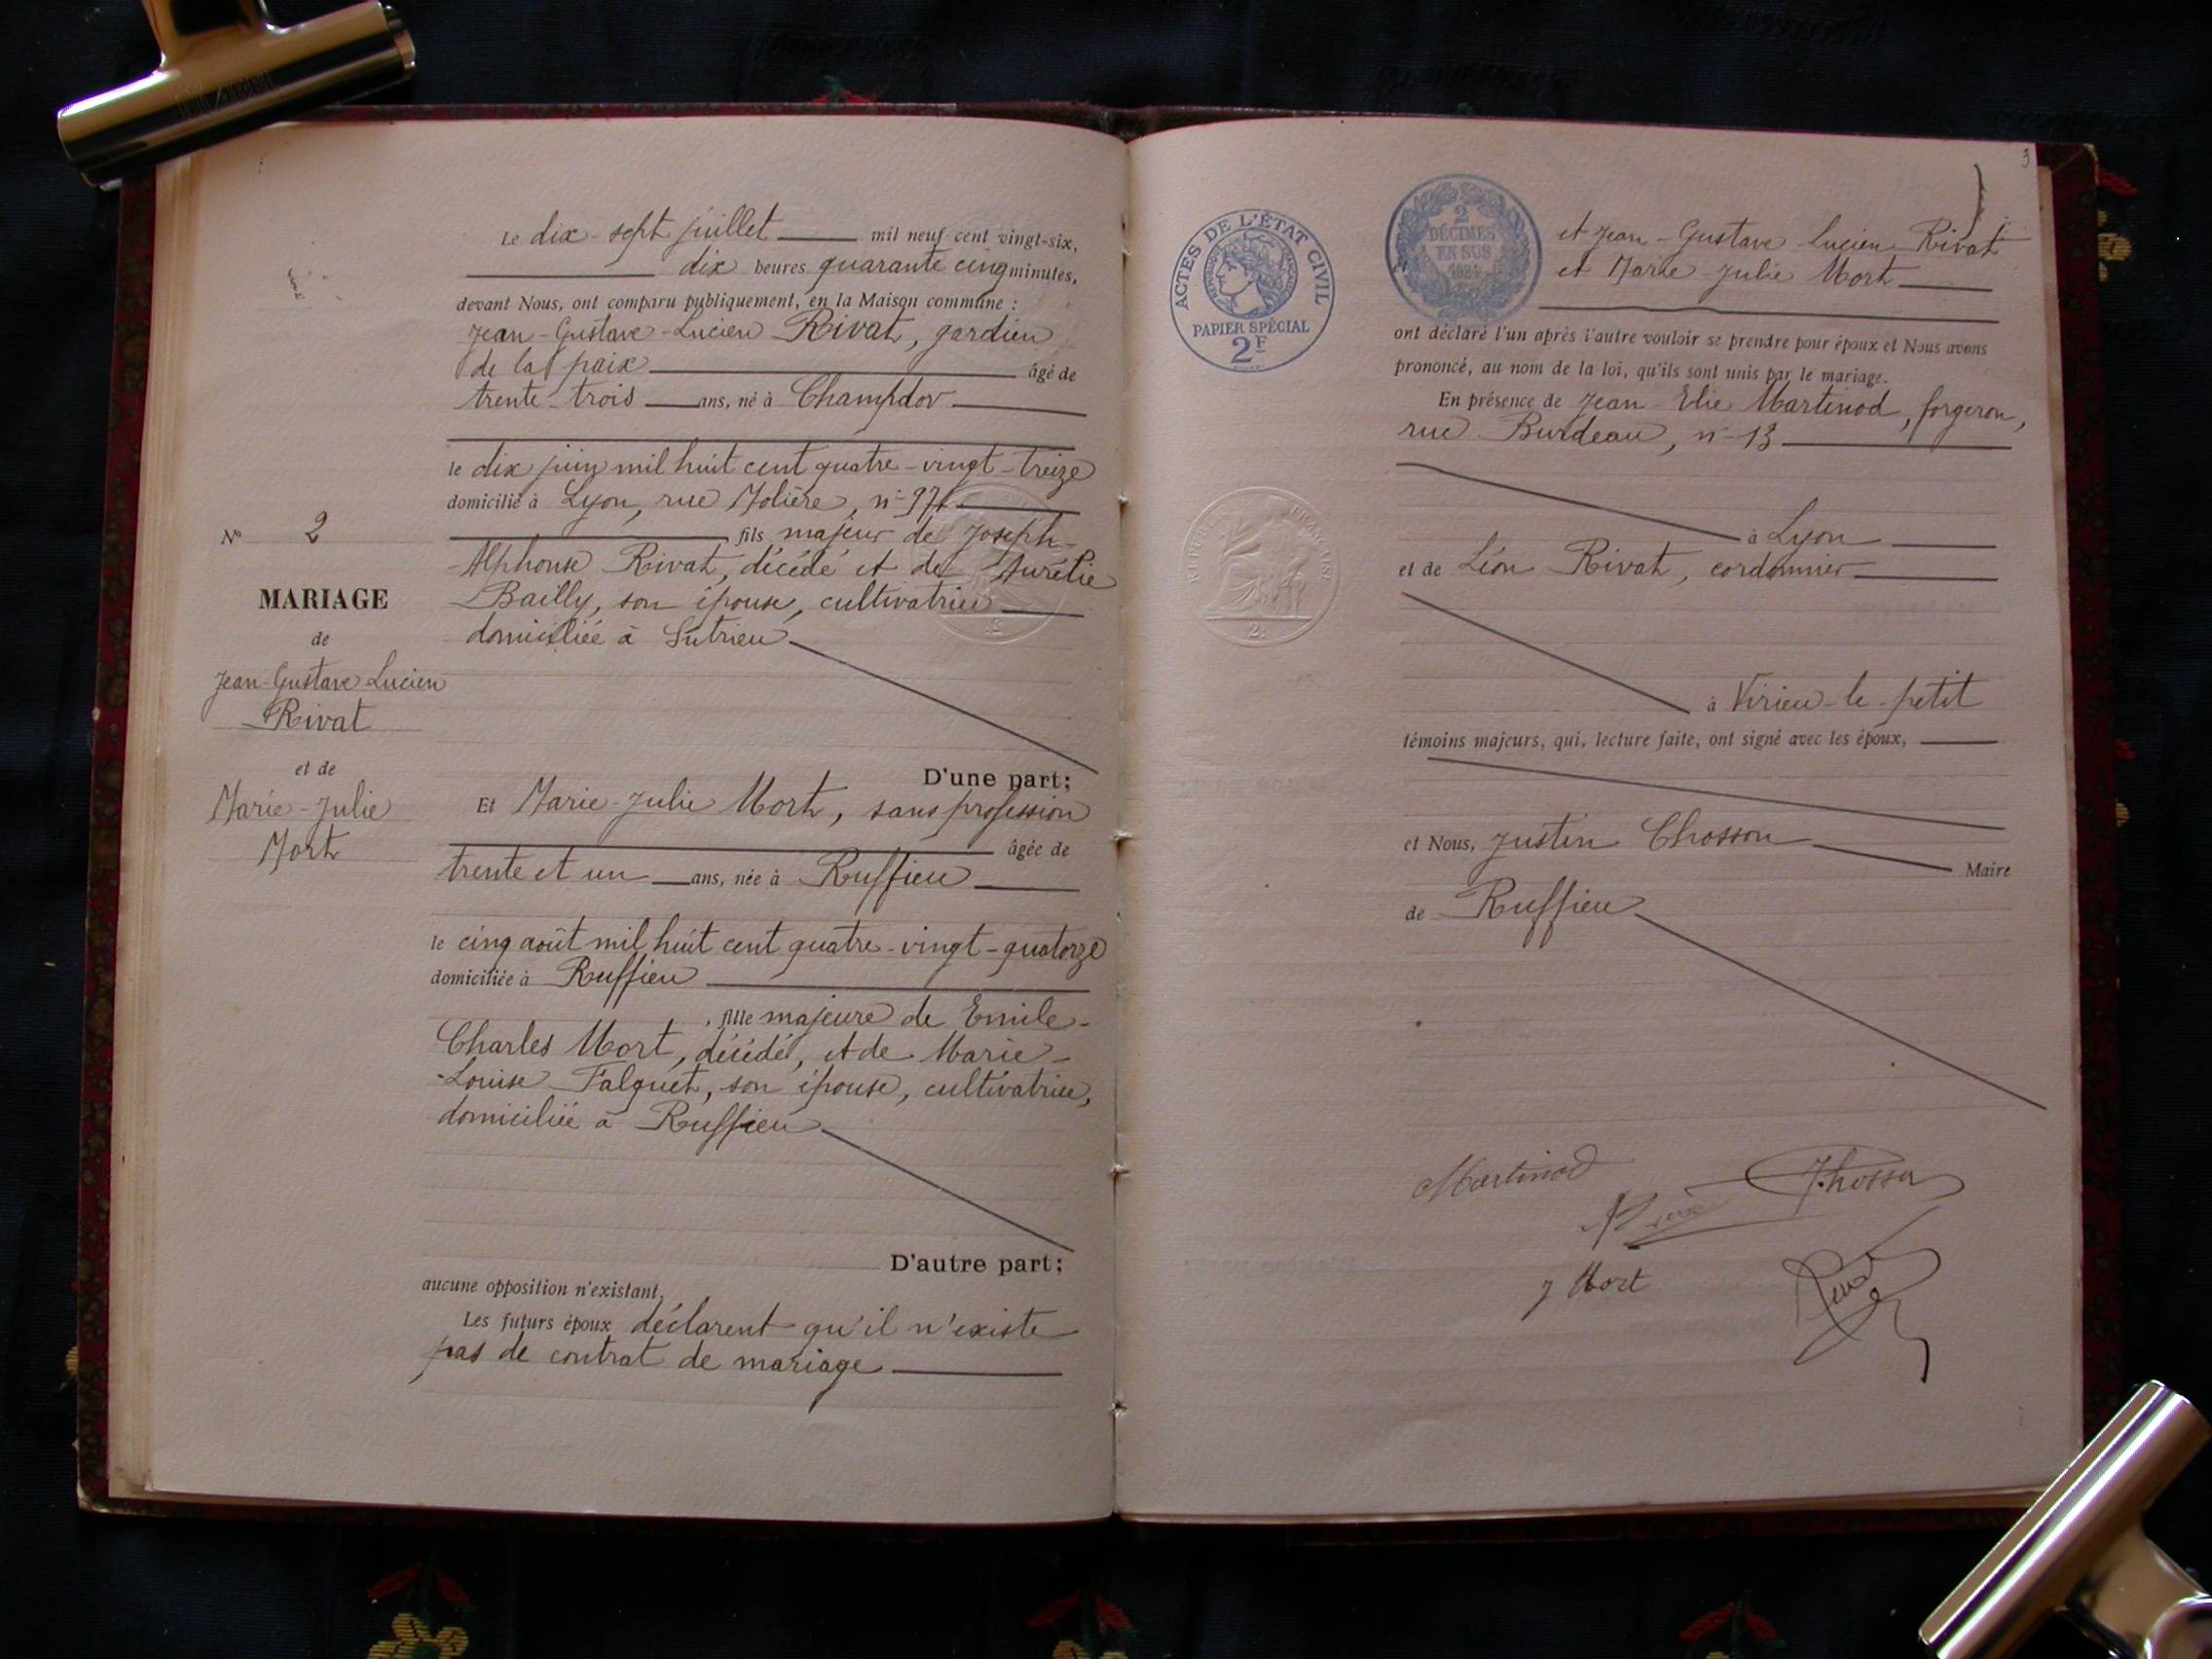 Le dix-sept juillet mil neuf cent vingt-six,
dix heures quarante cinq minutes,
devant Nous, ont comparu publiquement, en la Maison commune :
Jean-Gustave-Lucien Rivat, gardien
de la paix âgé de
trente-trois ans, né à Champdor
le dix juin mil huit cent quatre-vingt-treize
domicilié à Lyon, rue Molière, n° 97
fils majeur de Joseph-
Alphonse Rivat, décédé et de Aurélie
Bailly, son épouse, cultivatrice
domiciliée à Sutrieu
D'une part;
Et Marie-Julie Mort, sans profession
âgée de
trente et un ans, née à Ruffieu
le cinq août mil huit cent quatre-vingt-quatorze
domiciliée à Ruffieu
, fille majeure de Emile-
Charles Mort, décédé, et de Marie-
Louise Falquet, son épouse, cultivatrice,
domiciliée à Ruffieu
D'autre part;
aucune opposition n'existant.
Les futurs époux déclarent qu'il n'existe
pas de contrat de mariage
N° 2
MARIAGE
de
Jean-Gustave-Lucien
Rivat
et de
Marie-Julie
Mort
3
ACTES DE L'ÉTAT CIVIL
RÉPUBLIQUE FRANÇAISE
PAPIER SPÉCIAL
2F
2
DÉCIMES
EN SUS
Et
et Jean-Gustave-Lucien Rivat
et Marie-Julie Mort
ont déclaré l'un après l'autre vouloir se prendre pour époux et Nous avons
prononcé, au nom de la loi, qu'ils sont unis par le mariage.
En présence de Jean-Elie Martinod, forgeron,
rue Burdeau, n° 13
à Lyon
et de Léon Rivat, cordonnier
RÉPUBLIQUE FRANÇAISE
à Virieu-le-petit
témoins majeurs, qui, lecture faite, ont signé avec les époux,
et Nous, Justin Chosson
Maire
de Ruffieu
Martinod
J. Chosson
J Mort
Rivat